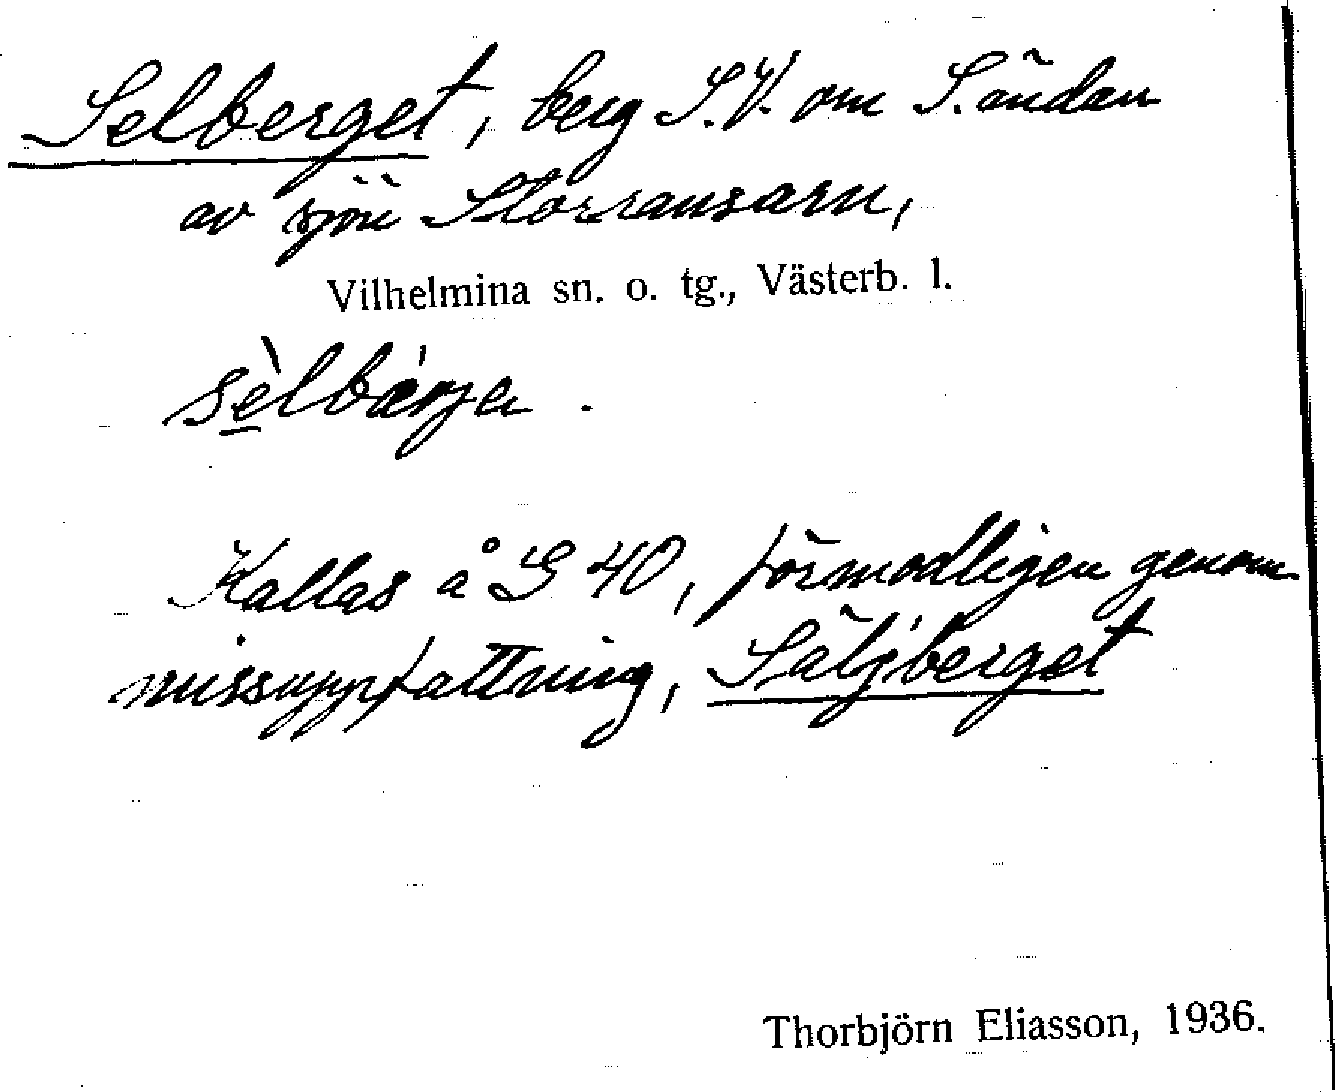 Selberget, berg S.V. om S. ändan
av sjön Storransarn,
Vilhelmina sn. o. tg., Västerb. l.
sèlbærja.
Kallas å G 40, förmodligen genom
missuppfattning, Säljberget
Thorbjörn Eliasson, 1936.